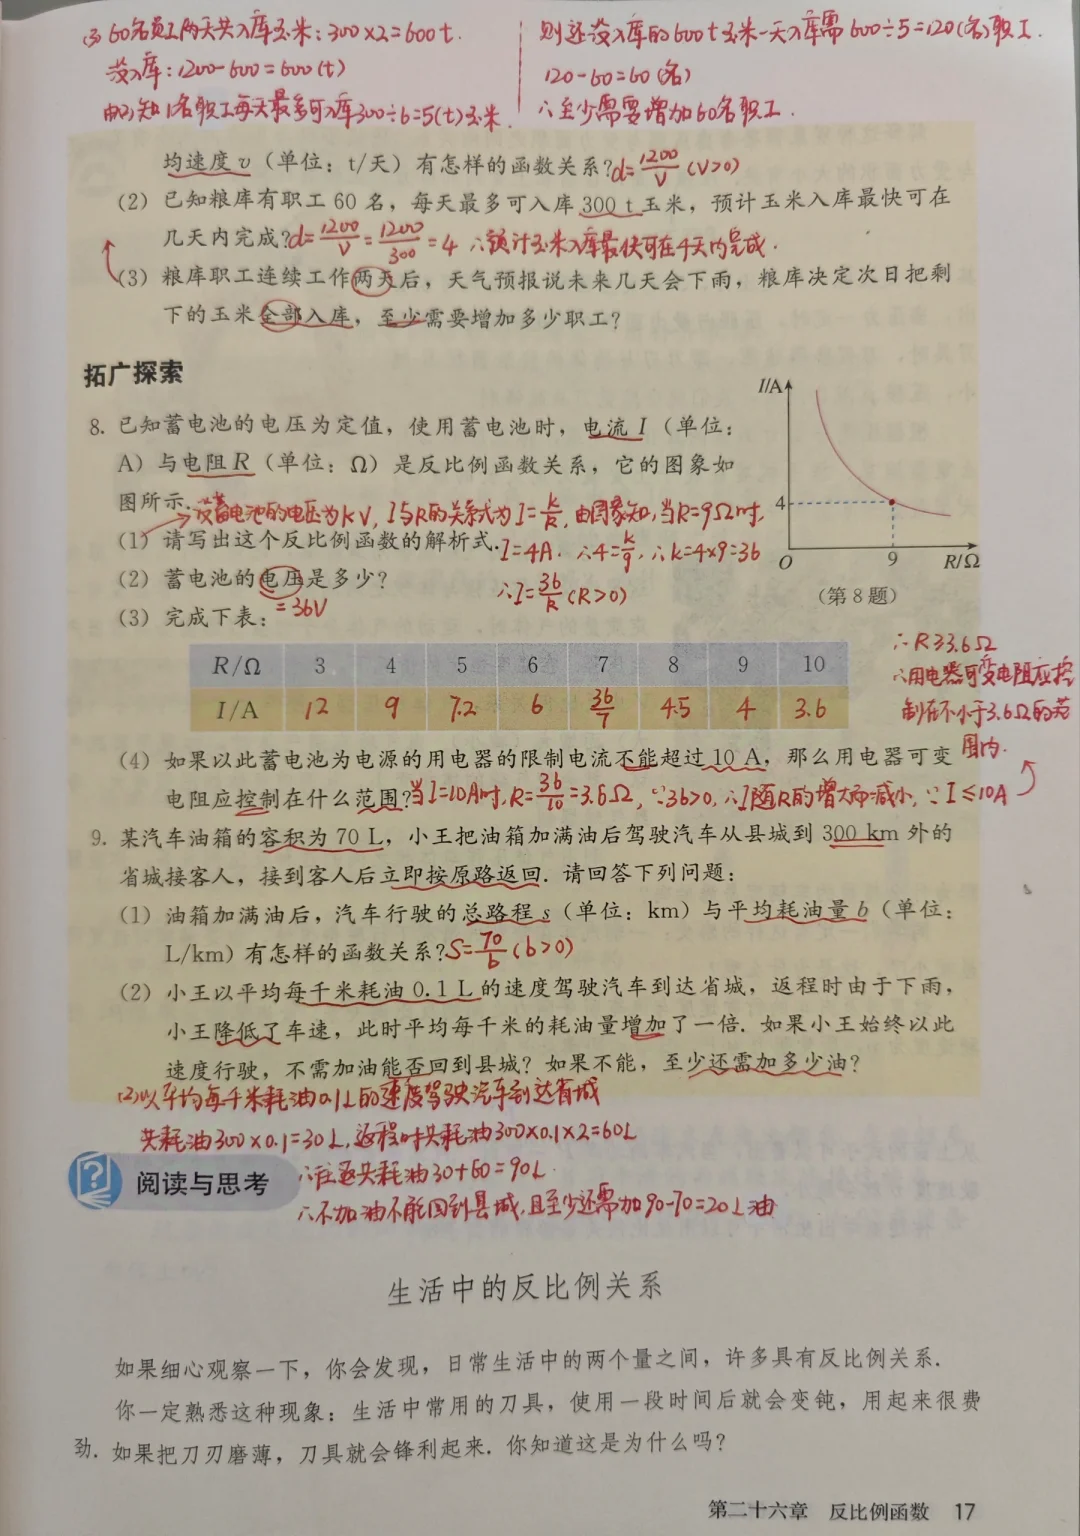 (3) 60名员工两天共入库玉米:300×2=600t.
没入库:1200-600=600(t)
由(2)知1名职工每天最多可入库300÷6=5(t)玉米.
则还没入库的600t玉米一天入库需600÷5=120(名)职工.
120-60=60(名)
∴至少需要增加60名职工.
均速度v(单位:t/天)有怎样的函数关系?d=1200/V (V>0)
(2) 已知粮库有职工60名,每天最多可入库300 t玉米,预计玉米入库最快可在
几天内完成?d=1200/V=1200/300=4 ∴预计玉米入库最快可在4天内完成.
(3) 粮库职工连续工作两天后,天气预报说未来几天会下雨,粮库决定次日把剩
下的玉米全部入库,至少需要增加多少职工?
拓广探索
8. 已知蓄电池的电压为定值,使用蓄电池时,电流I(单位:
A)与电阻R(单位:Ω)是反比例函数关系,它的图象如
图所示.
设蓄电池的电压为kV,I与R的关系式为I=k/R,由图象知,当R=9Ω时,
(1) 请写出这个反比例函数的解析式.I=4A. ∴4=k/9, ∴k=4×9=36
(2) 蓄电池的电压是多少?
∴I=36/R(R>0)
=36V
(3) 完成下表:
I/A
4
O
9
R/Ω
(第8题)
R/Ω 3 4 5 6 7 8 9 10
I/A 12 9 7.2 6 36/7 4.5 4 3.6
(4) 如果以此蓄电池为电源的用电器的限制电流不能超过10 A,那么用电器可变
电阻应控制在什么范围?当I=10A时,R=36/10=3.6Ω,∵36>0,∴I随R的增大而减小,∵I≤10A
∴R≥3.6Ω
∴用电器可变电阻应控
制在不小于3.6Ω的范
围内.
9. 某汽车油箱的容积为70 L,小王把油箱加满油后驾驶汽车从县城到300 km外的
省城接客人,接到客人后立即按原路返回.请回答下列问题:
(1) 油箱加满油后,汽车行驶的总路程s(单位:km)与平均耗油量b(单位:
L/km)有怎样的函数关系?S=70/b(b>0)
(2) 小王以平均每千米耗油0.1 L的速度驾驶汽车到达省城,返程时由于下雨,
小王降低了车速,此时平均每千米的耗油量增加了一倍.如果小王始终以此
速度行驶,不需加油能否回到县城?如果不能,至少还需加多少油?
(2)以平均每千米耗油0.1L的速度驾驶汽车到达省城
共耗油300×0.1=30L,返程时共耗油300×0.1×2=60L
∴往返共耗油30+60=90L.
∴不加油不能回到县城,且至少还需加90-70=20L油
阅读与思考
生活中的反比例关系
如果细心观察一下,你会发现,日常生活中的两个量之间,许多具有反比例关系.
你一定熟悉这种现象:生活中常用的刀具,使用一段时间后就会变钝,用起来很费
劲.如果把刀刃磨薄,刀具就会锋利起来.你知道这是为什么吗?
第二十六章 反比例函数 17